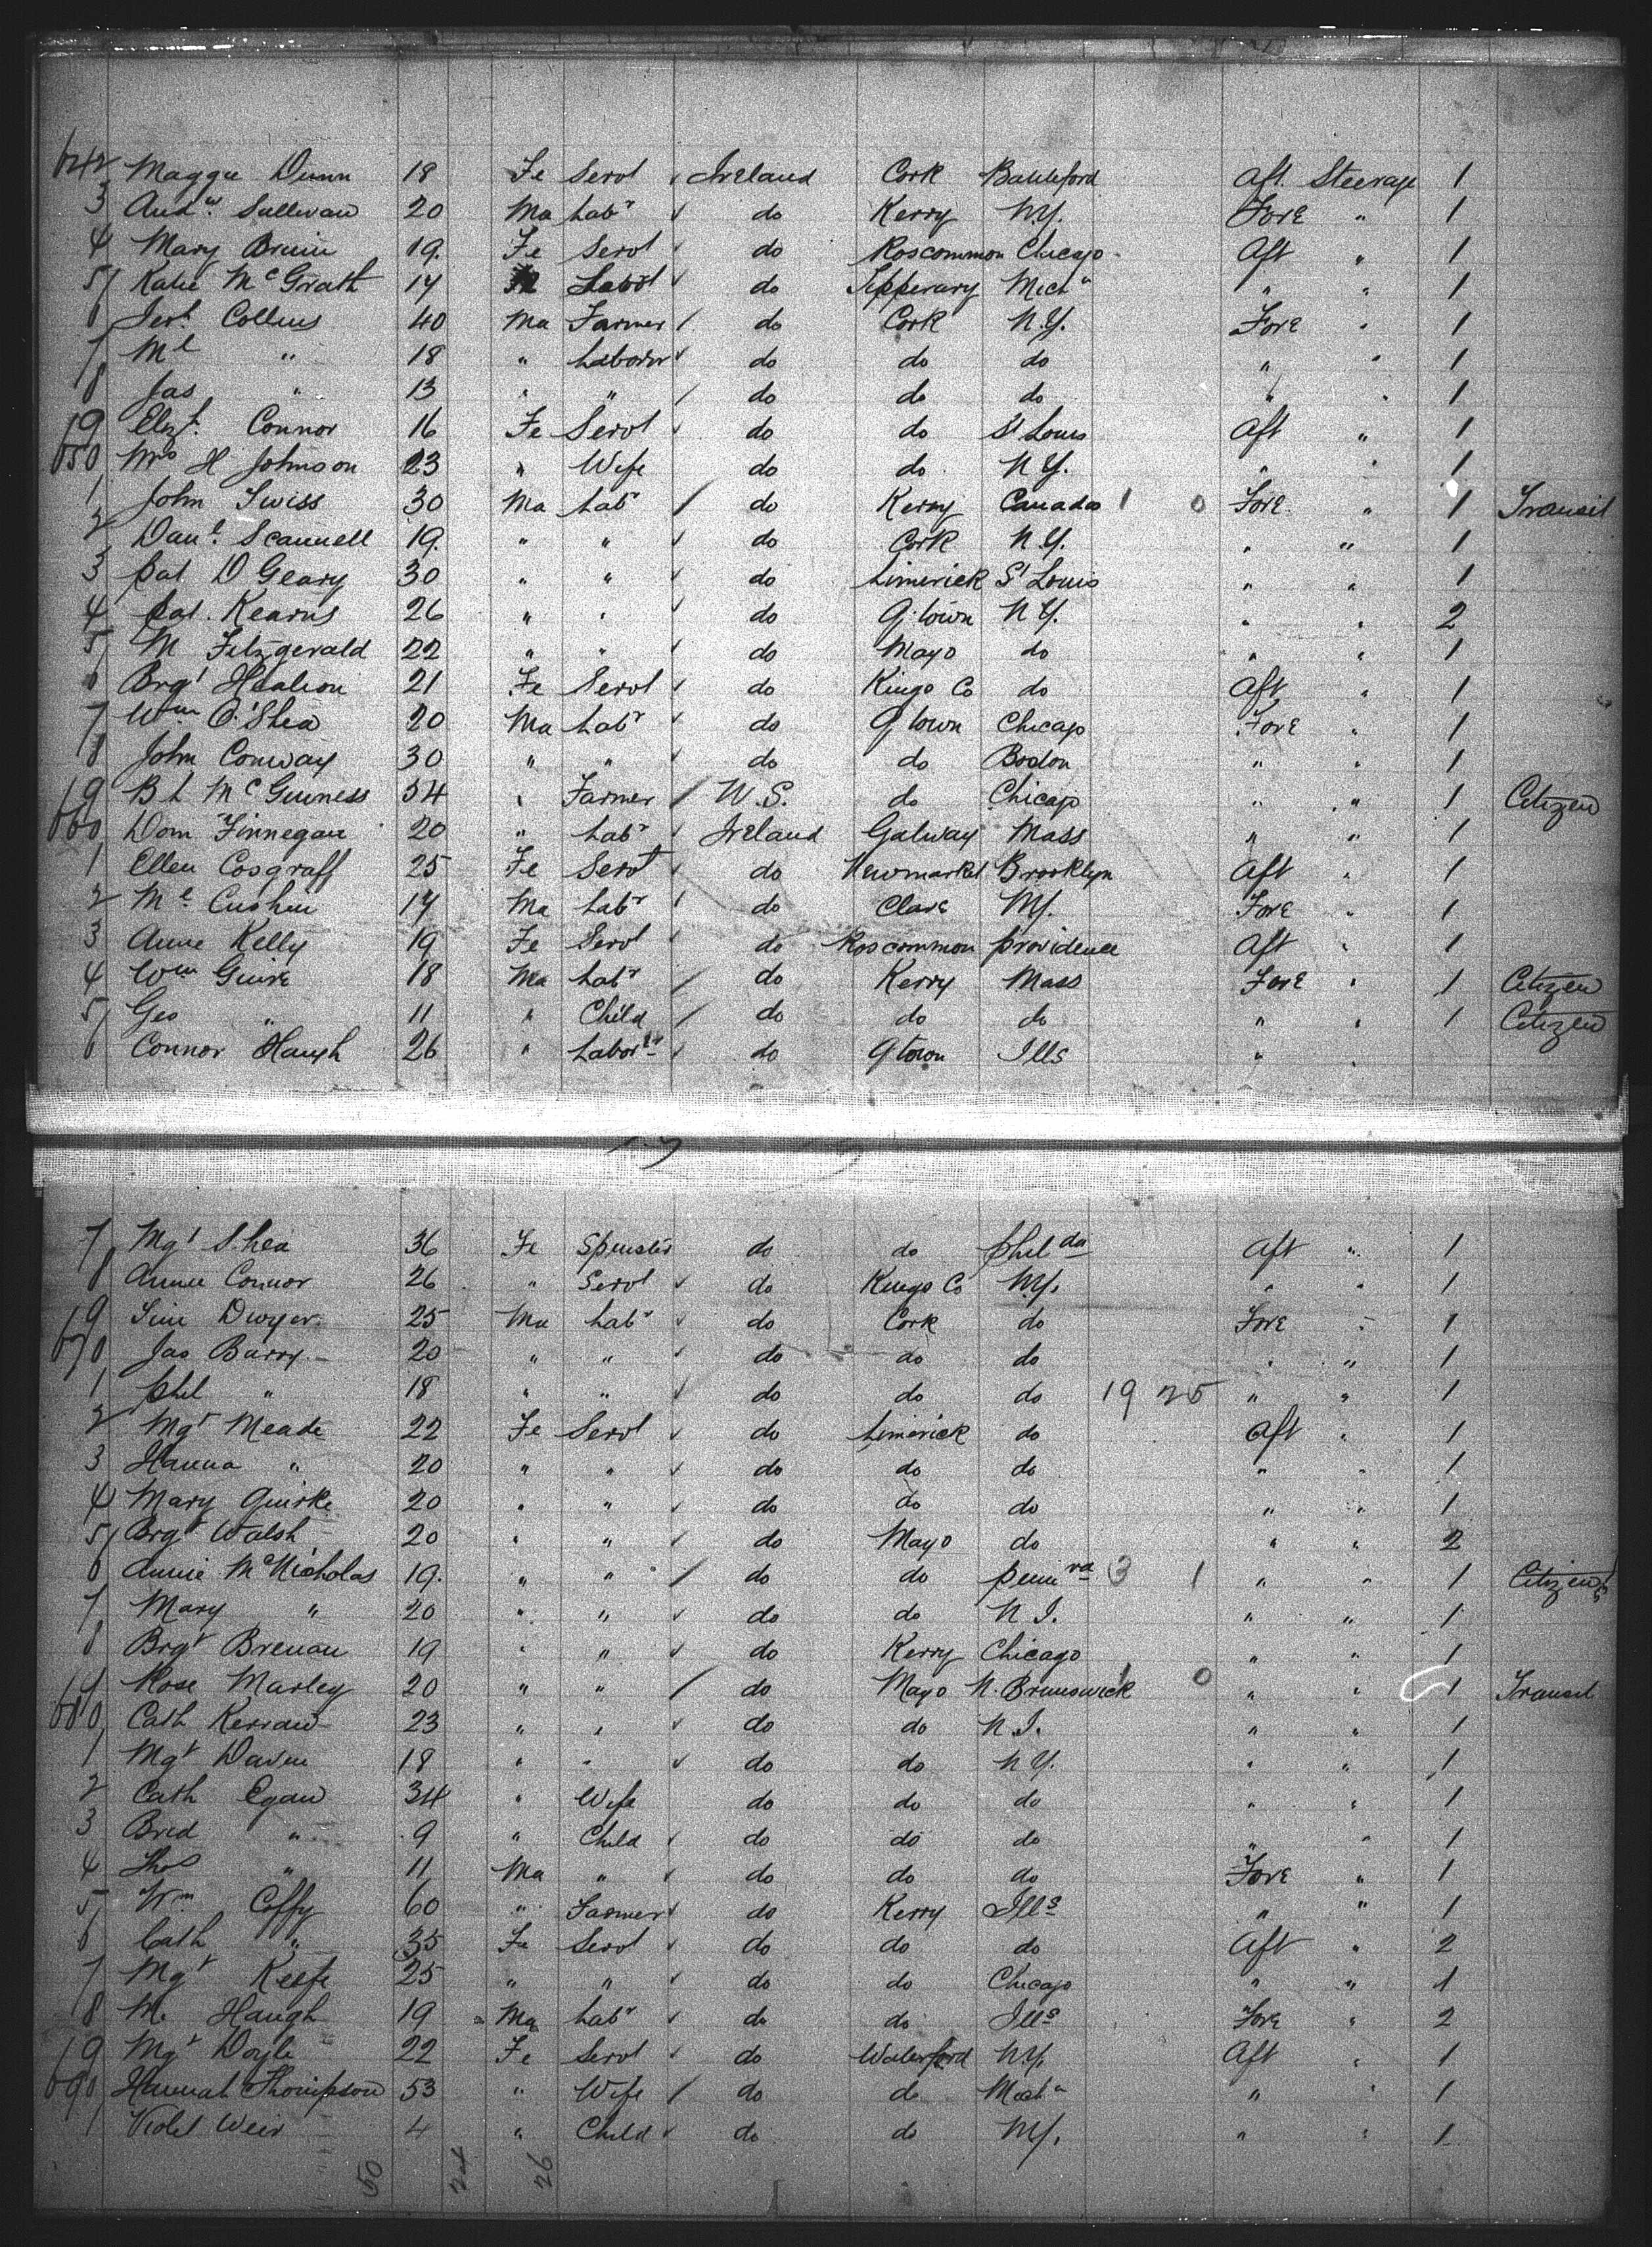 642 Maggie Dunn 18 Fe Servt Ireland Cork Aft Steerage 1
3 Andw. Sullivan 20 Ma Labr do Kerry NY. Fore " 1
4 Mary Bruin 19. Fe Servt do Roscommon Chicago Aft " 1
5 Katie McGrath 17 do Tipperary Mich " " " 1
6 Jerh Collins 40 Ma Farmer do Cork N.Y. Fore " 1
7 Ml " 18 " Laborer do do do " " 1
8 Jas " 13 " " do do do " " 1
9 Elizh. Connor 16 Fe Servt do do St Louis Aft " 1
650 Mrs H Johnson 23 " Wife do do N.Y. " " 1
1 John Twiss 30 Ma Labr do Kerry Canada 1 0 Fore " 1 Transit
2 Danl. Scannell 19. " " do Cork N.Y. " " 1
3 Pat. D Geary 30 " " do Limerick St Louis " " 1
4 Pat. Kearns 26 " " do Q.town N.Y. " " 2
5 M Fitzgerald 22 " " do Mayo do " " 1
6 Brgt Healion 21 Fe Servt do Kings Co do Aft " 1
7 Wm O'Shea 20 Ma Labr do Qtown Chicago Fore " 1
8 John Conway 30 " " do do Boston " " 1
9 B L McGuiness 54 " Farmer U.S. do Chicago " " 1 Citizen
660 Dom Finnegan 20 " Labr Ireland Galway Mass " " 1
1 Ellen Cosgraff 25 Fe Servt do Newmarket Brooklyn Aft " 1
2 Ml. 17 Ma Labr do Clare NY. Fore " 1
3 Anne Kelly 19 Fe Servt do Roscommon Providence Aft " 1
4 Wm 18 Ma Labr do Kerry Mass Fore " 1 Citizen
5 Geo " 11 " Child do do do " " 1 Citizen
6 Connor Haugh 26 " Laborer do Qtown Ills " "
7 Mgt Shea 36 Fe Spinster do do Philda Aft " 1
8 Annie Connor 26 " Servt do Kings Co NY. " " 1
9 Tim Dwyer 25 Ma Labr do Cork do Fore " 1
670 Jas Barry 20 " " do do do " " 1
1 Phil " 18 " " do do do 19 25 " " 1
2 Mgt Meade 22 Fe Servt do Limerick do Aft " 1
3 Hanna " 20 " " do do do " " 1
4 Mary Quirke 20 " " do do do " " 1
5 Brgt Walsh 20 " " do Mayo do " " 2
6 Annie McNicholas 19. " " do do Pennva 3 1 " " 1 Citizen
7 Mary " 20 " " do do N J. " " 1
8 Brgt Brenan 19 " " do Kerry Chicago " " 1
9 Rose Marley 20 " " do Mayo N. Brunswick 1 0 " " 1 Transit
680 Cath 23 " " do do N J. " " 1
1 Mgt Daven 18 " " do do N Y. " " 1
2 Cath Egan 34 " Wife do do do " " 1
3 Brid " 9 " Child do do do " " 1
4 Thos " 11 Ma " do do do Fore " 1
5 Wm Coffy 60 " Farmer do Kerry Ills " " 1
6 Cath " 35 Fe Servt do do do Aft " 2
7 Mgt Keefe 25 " " do do Chicago " " 1
8 M. Haugh 19 Ma Labr do do Ills Fore " 2
9 Mgt Doyle 22 Fe Servt do Waterford NY. Aft " 1
690 Hannah Thompson 53 " Wife do do Mich " " " 1
1 Violet Weir 4 " Child do do NY. " " 1
50 24 26